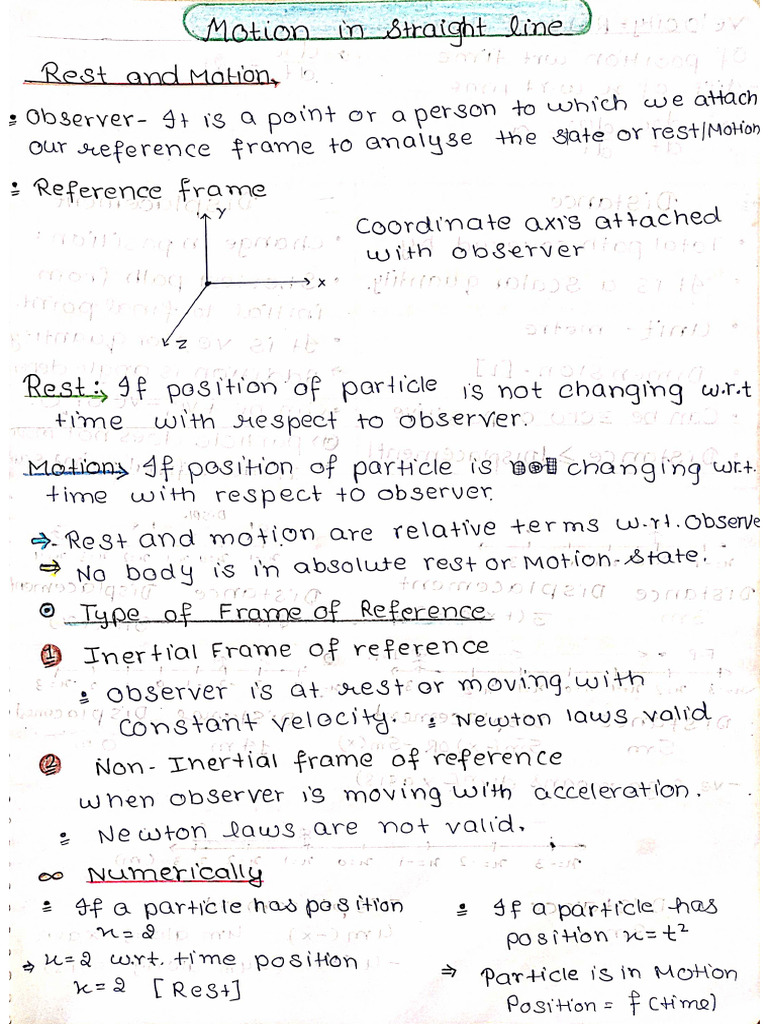 Motion in straight line
Rest and Motion
: Observer - It is a point or a person to which we attach
our reference frame to analyse the state or rest/Motion
: Reference frame
Y
Coordinate axis attached
with observer
X
Z
Rest: If position of particle is not changing w.r.t
time with respect to observer.
Motion If position of particle is changing w.r.t.
time with respect to observer.
⇒ Rest and motion are relative terms w.r.t. Observe
⇒ No body is in absolute rest or Motion-State.
Type of Frame of Reference
1 Inertial Frame of reference
: Observer is at rest or moving with
Constant velocity. : Newton laws valid
2 Non-Inertial frame of reference
when observer is moving with acceleration.
: Newton laws are not valid.
∞ Numerically
: If a particle has position
x=2
⇒ x=2 w.r.t. time position
x=2 [Rest]
: If a particle has
position x=t²
⇒ Particle is in Motion
Position = f(time)